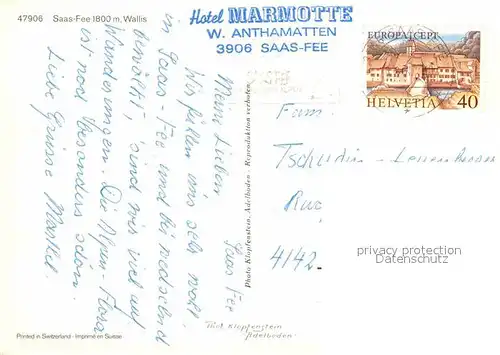 47906 Saas-Fee 1800 m, Wallis
Hotel MARMOTTE
W. ANTHAMATTEN
3906 SAAS-FEE
EUROPA CEPT
HELVETIA 40
Saas Fee
Meine Lieben
Wir fühlen uns sehr wohl
in Saas-Fee und bei wechselnd
bewölkt, sind wir viel auf
Wanderungen. Die Alpen-Flora
ist noch besonders schön.
Liebe Grüsse
Fam.
4142
privacy protection
www.ansichtskartenversand.com
Photo Klopfenstein, Adelboden - Reproduktion verboten
Phot. Klopfenstein
Adelboden
Printed in Switzerland - Imprimé en Suisse